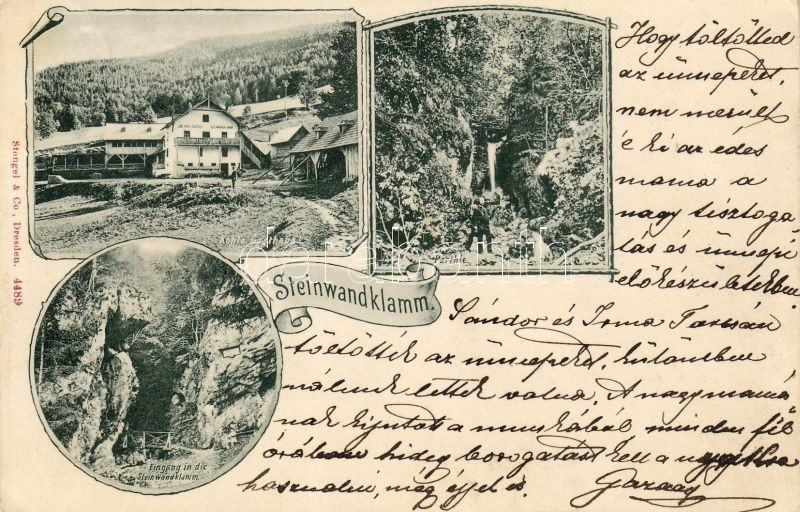 Hogy töltötted
az ünnepeket,
nem merült
é ki az édes
mama a
nagy tisztoga
tás és ünnepi
előkészületekben.
Sándor és Irma Tarcsán
töltötték az ünnepeket, különben
nálunk lettek volna. A nagymamá
nak kijutott a munkából minden fél
órában hideg borogatást kell a
használni, még éjjel is.
Steinwandklamm.
Partie.
Eingang in die
Steinwandklamm.
Stengel & Co., Dresden. 4489
darabanth